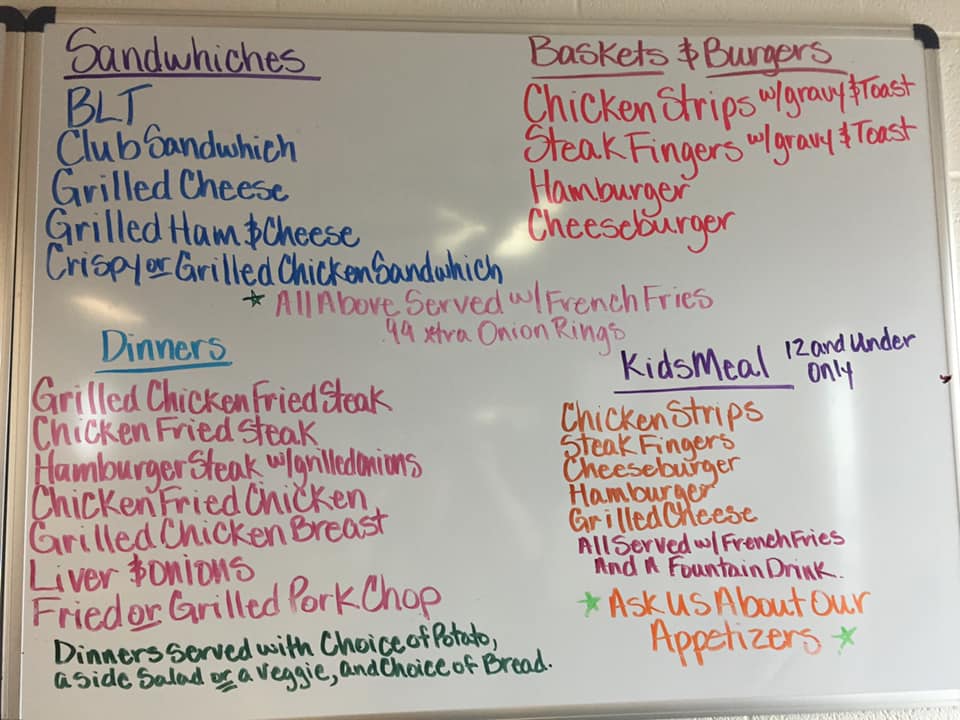 Sandwhiches
BLT
Club Sandwhich
Grilled Cheese
Grilled Ham & Cheese
Crispy or Grilled Chicken Sandwhich
Baskets & Burgers
Chicken Strips w/gravy & Toast
Steak Fingers w/gravy & Toast
Hamburger
Cheeseburger
★ All Above Served w/ French Fries
.99 xtra Onion Rings
Dinners
Grilled Chicken Fried Steak
Chicken Fried Steak
Hamburger Steak w/grilled onions
Chicken Fried Chicken
Grilled Chicken Breast
Liver & Onions
Fried or Grilled Pork Chop
Dinners served with Choice of Potato,
a side Salad or a Veggie, and Choice of Bread.
Kids Meal 12 and Under
only
Chicken Strips
Steak Fingers
Cheeseburger
Hamburger
Grilled Cheese
All Served w/ French Fries
And A Fountain Drink.
★ Ask Us About Our
Appetizers ★